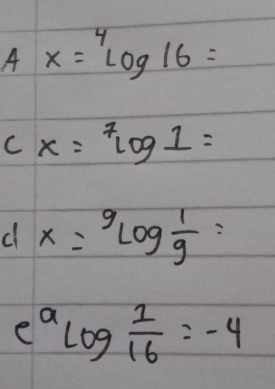 A x = ⁴Log 16 =
C x = ⁷Log 1 =
d x = ⁹Log 1/9 =
e ᵃLog 1/16 = -4